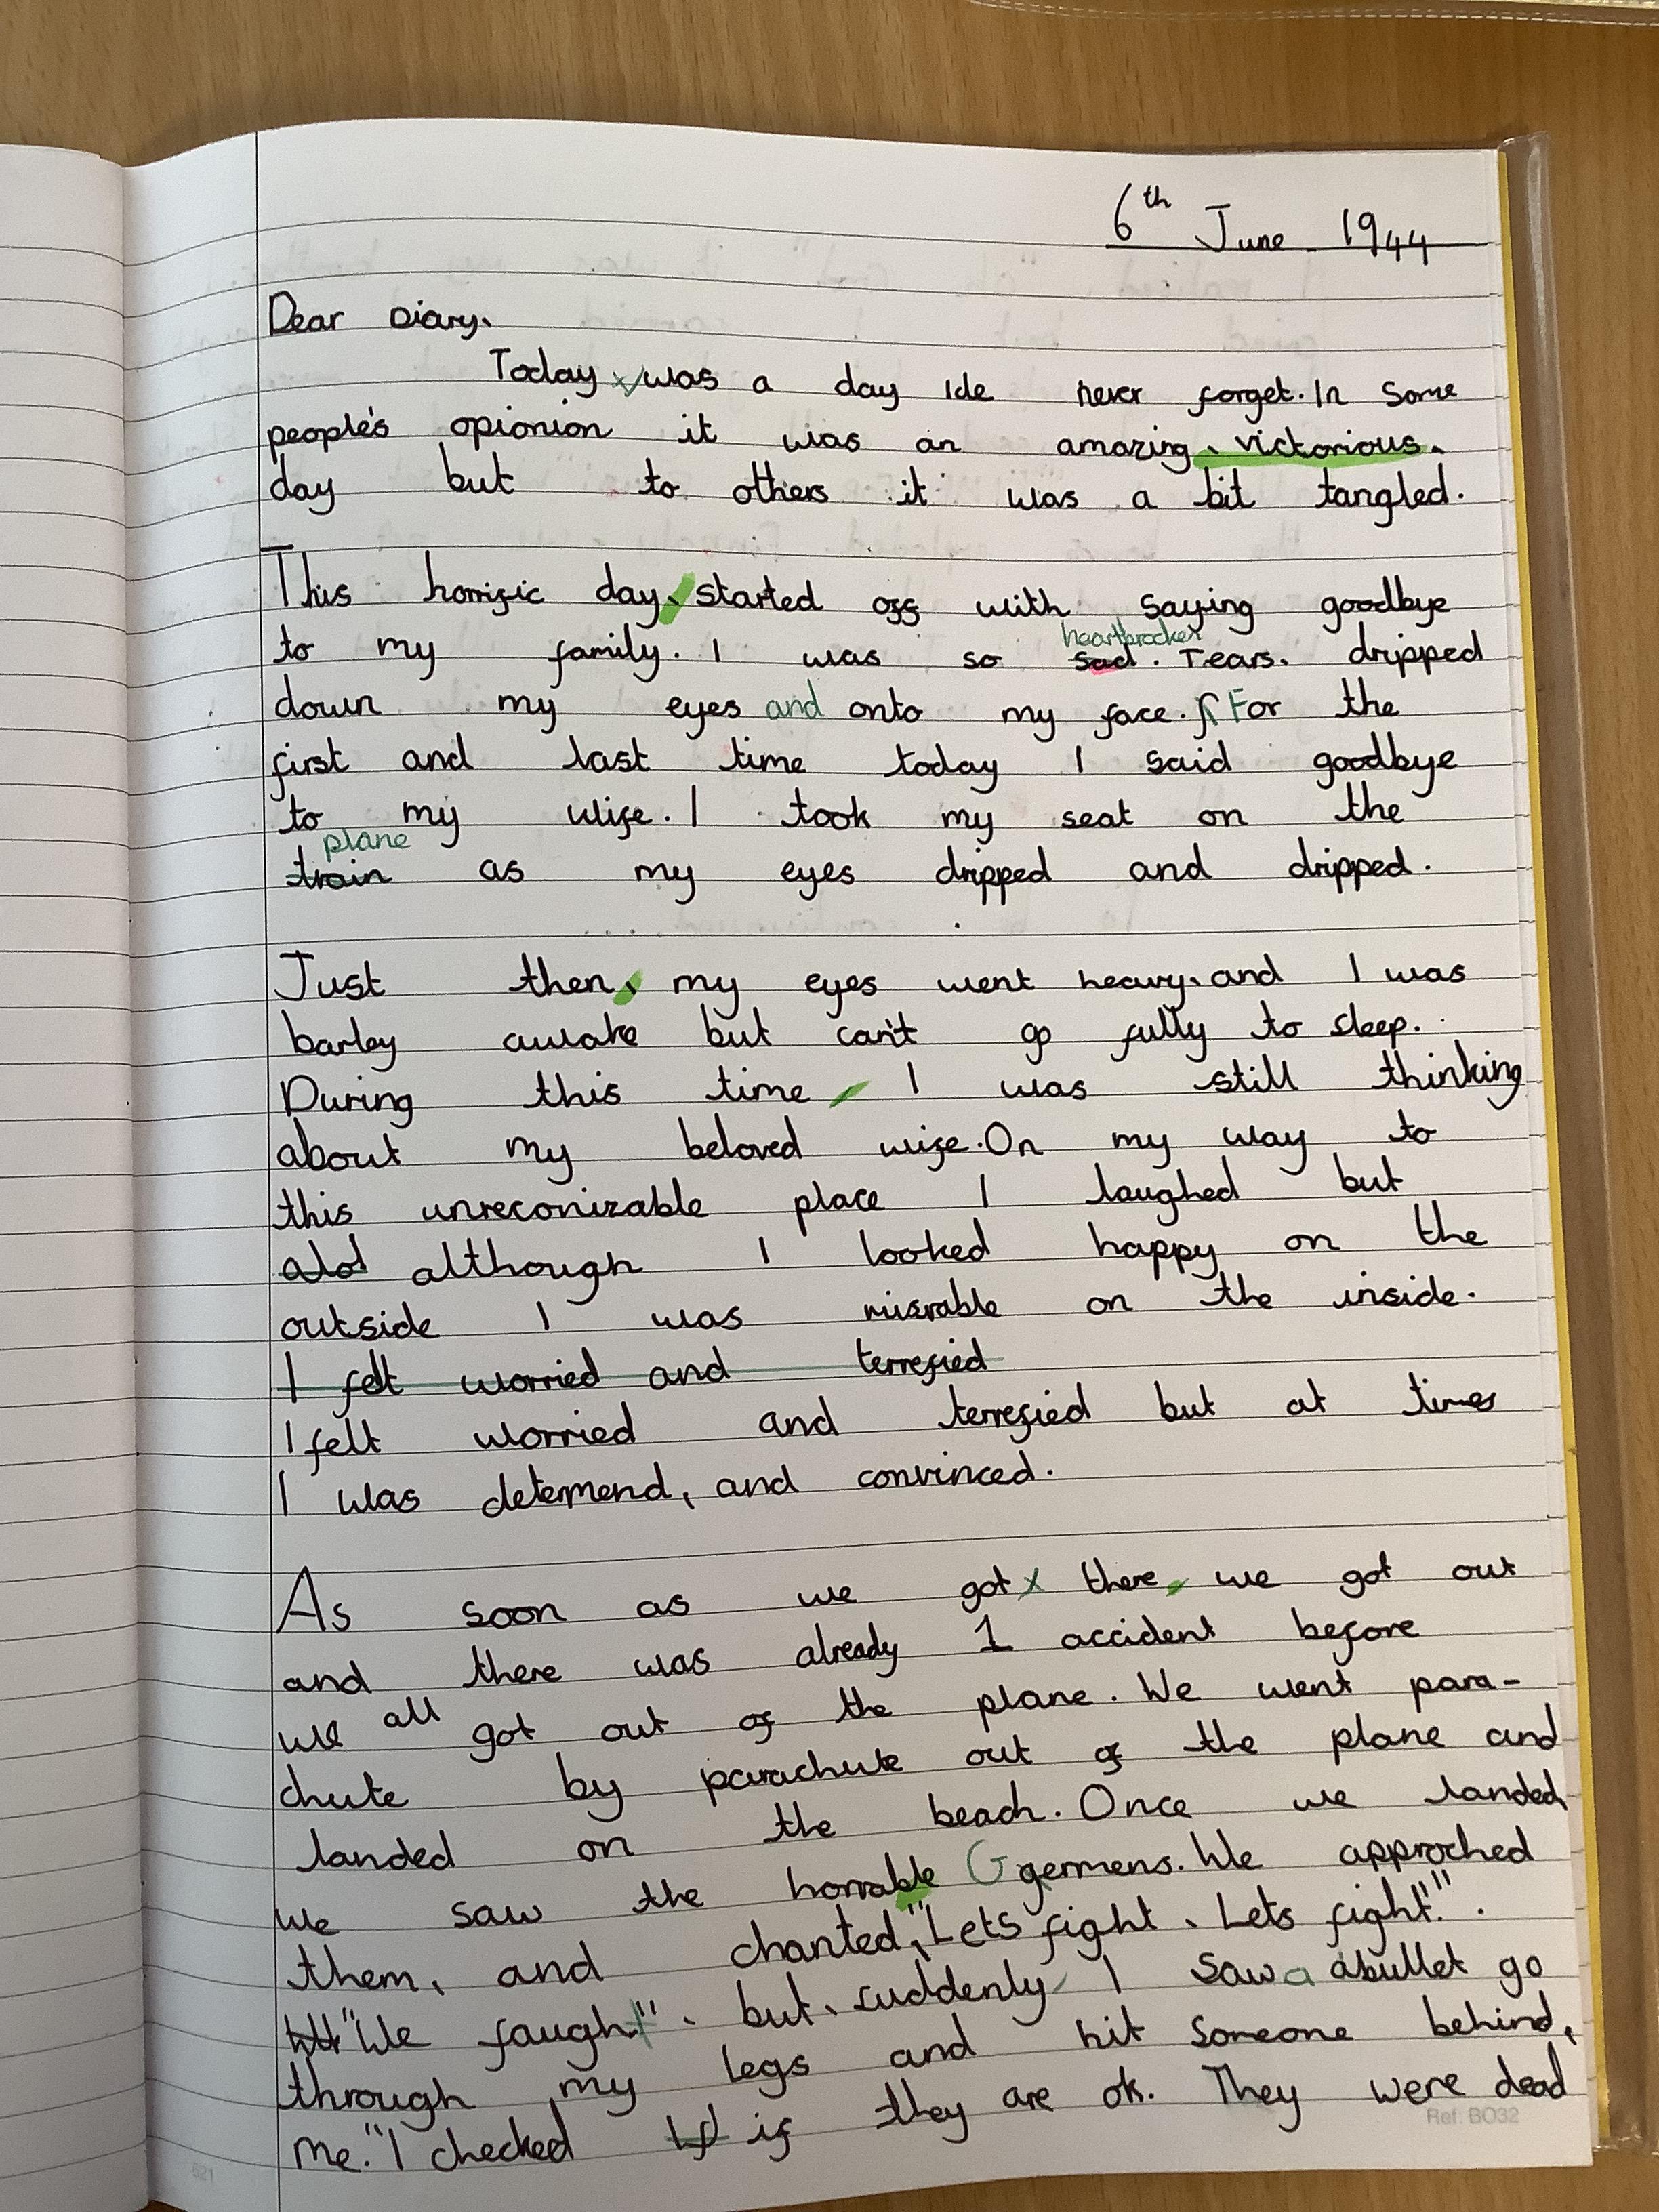 6th June 1944
Dear Diary,
Today was a day Ide never forget. In some
people's opionion it was an amazing, victorious,
day but to others it was a bit tangled.
This horrific day, started off with saying goodbye
heartbrocken
to my family. I was so sad. Tears. dripped
down my eyes and onto my face. For the
first and last time today I said goodbye
to my wife. I took my seat on the
plane
train as my eyes dripped and dripped.
Just then, my eyes went heavy, and I was
barley awake but can't go fully to sleep.
During this time, I was still thinking
about my beloved wife. On my way to
this unreconizable place I laughed but
alod although I looked happy on the
outside I was misrable on the inside.
I felt worried and terrefied
I felt worried and terrefied but at times
I was determend, and convinced.
As soon as we got there, we got out
and there was already 1 accident before
we all got out of the plane. We went para-
chute by parachute out of the plane and
landed on the beach. Once we landed
we saw the horrable G germens. We approched
them, and chanted, "Lets fight, Lets fight"."
"We faught", but, suddenly, I saw a abullet go
through my legs and hit someone behind,
me. "I checked if they are ok. They were dead
Ref: BO32
621